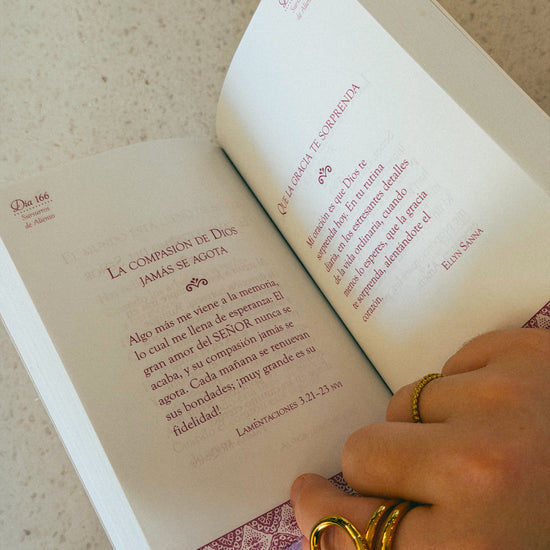 Día 166
Susurros
de Aliento
La compasión de Dios
jamás se agota
Algo más me viene a la memoria,
lo cual me llena de esperanza: El
gran amor del SEÑOR nunca se
acaba, y su compasión jamás se
agota. Cada mañana se renuevan
sus bondades; ¡muy grande es su
fidelidad!
Lamentaciones 3.21–23 NVI
Susurros
de Aliento
Que la gracia te sorprenda
Mi oración es que Dios te
sorprenda hoy. En tu rutina
diaria, en los estresantes detalles
de la vida ordinaria, cuando
menos lo esperes, que la gracia
te sorprenda, alentándote el
corazón.
Ellyn Sanna